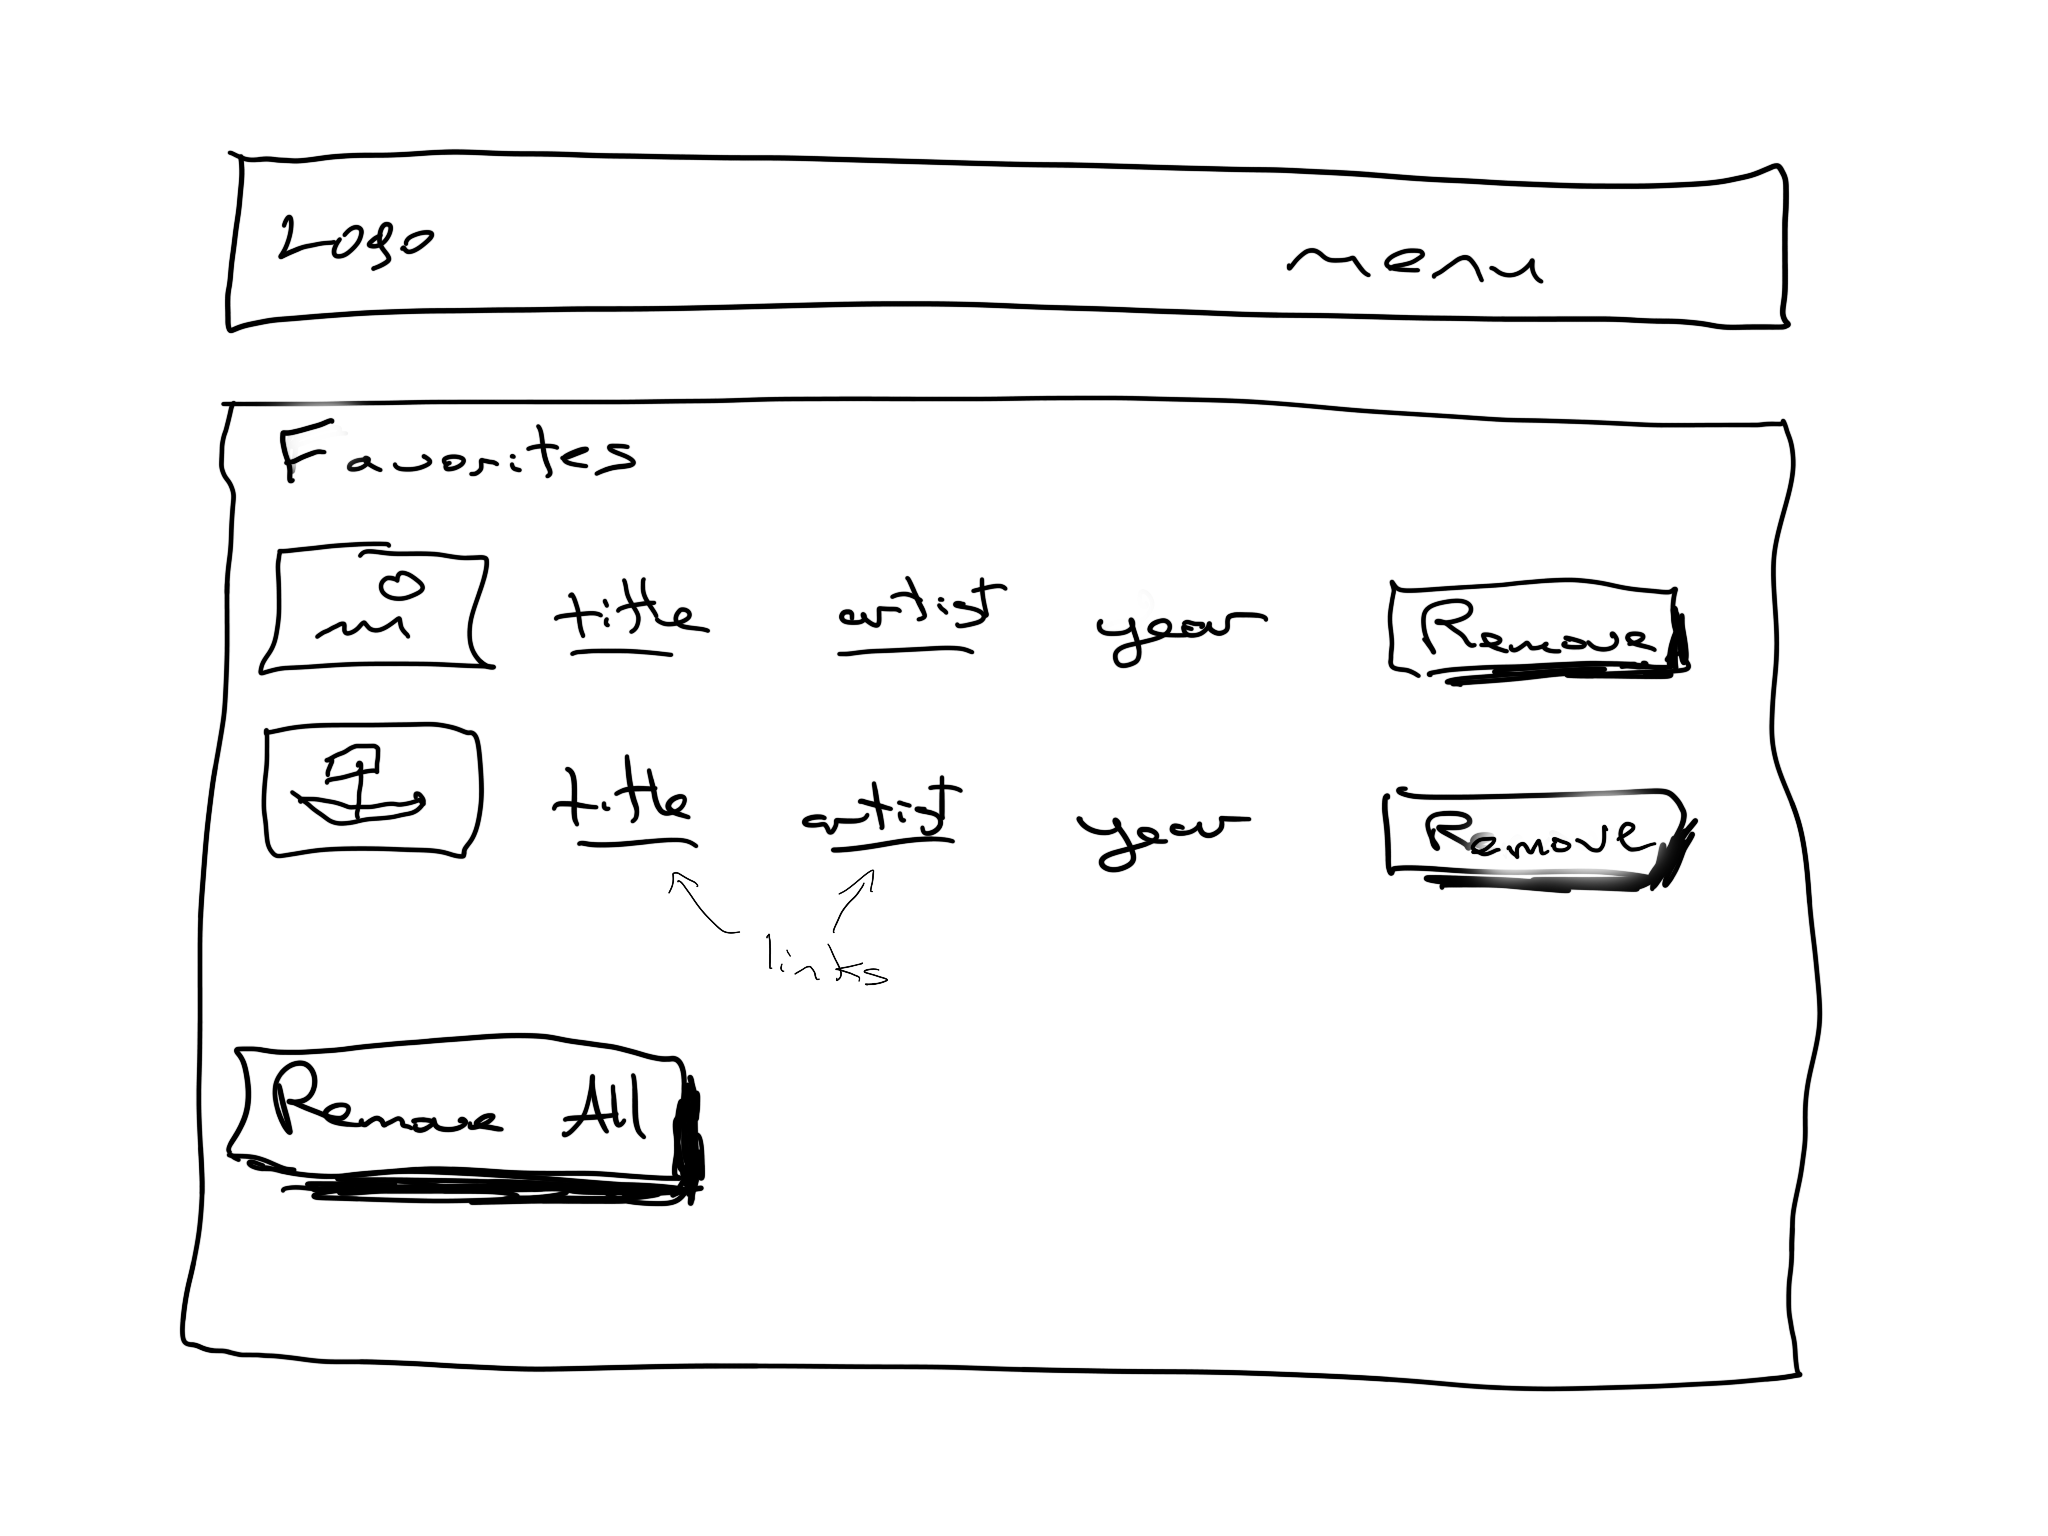 Logo menu
Favorites
title artist year Remove
title artist year Remove
links
Remove All